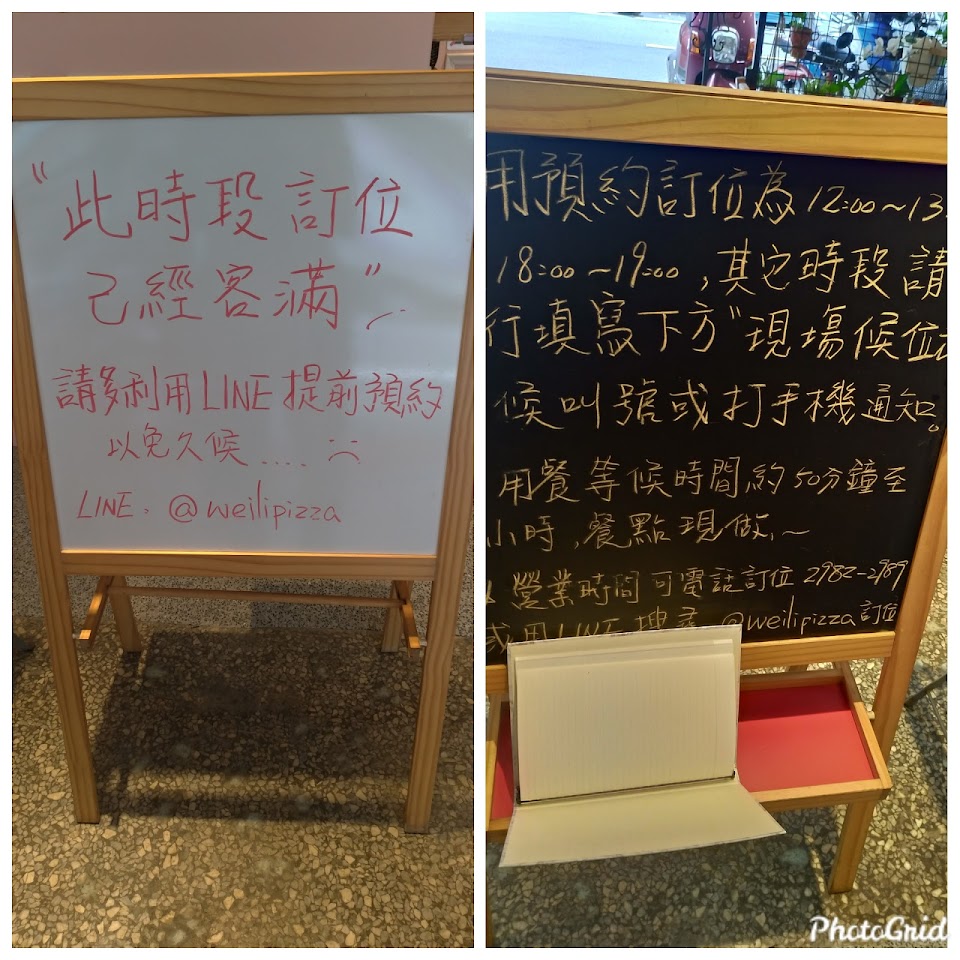 "此時段訂位
己經客滿"
請多利用LINE提前預約
以免久候....
LINE. @weilipizza
用預約訂位為12:00~13
18:00~19:00,其它時段請
行填寫下方"現場候位
候叫號或打手機通知。
用餐等候時間約50分鐘至
小時,餐點現做,~
營業時間可電話訂位2982-2989
或用LINE搜尋 @weilipizza訂位
PhotoGrid